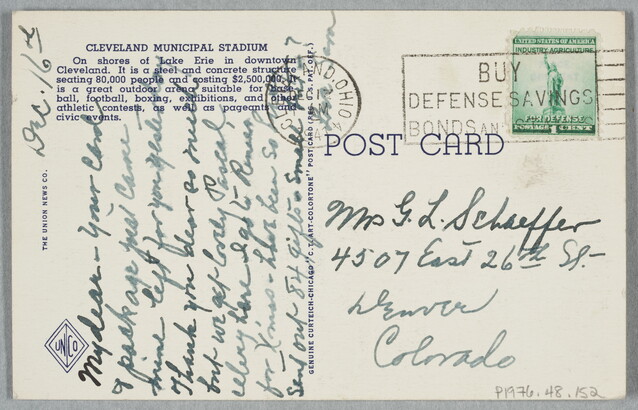 CLEVELAND MUNICIPAL STADIUM
On shores of Lake Erie in downtown
Cleveland. It is a steel and concrete structure
seating 80,000 people and costing $2,500,000. It
is a great outdoor
ball, football, boxing, exhibitions, and
athletic contests, as well as pageants and
civic events.
THE UNION NEWS CO.
UNCO
GENUINE CURTEICH-CHICAGO "C.T. ART-COLORTONE" POST CARD (REG. U.S. PAT. OFF.)
Dec. 16th
My dear - Your card
& package just came
mine left for you yesterday
Thank you dear so much
but we get lovely
here I get to
for Xmas - has been so
Sent out 84 gifts
OHIO
BUY
DEFENSE SAVINGS
BONDS AN
UNITED STATES OF AMERICA
INDUSTRY AGRICULTURE
FOR DEFENSE
POSTAGE 1 CENT
POST CARD
Mrs G. L. Schaeffer
4507 East 26th St.-
Denver
Colorado
P1976.48.152